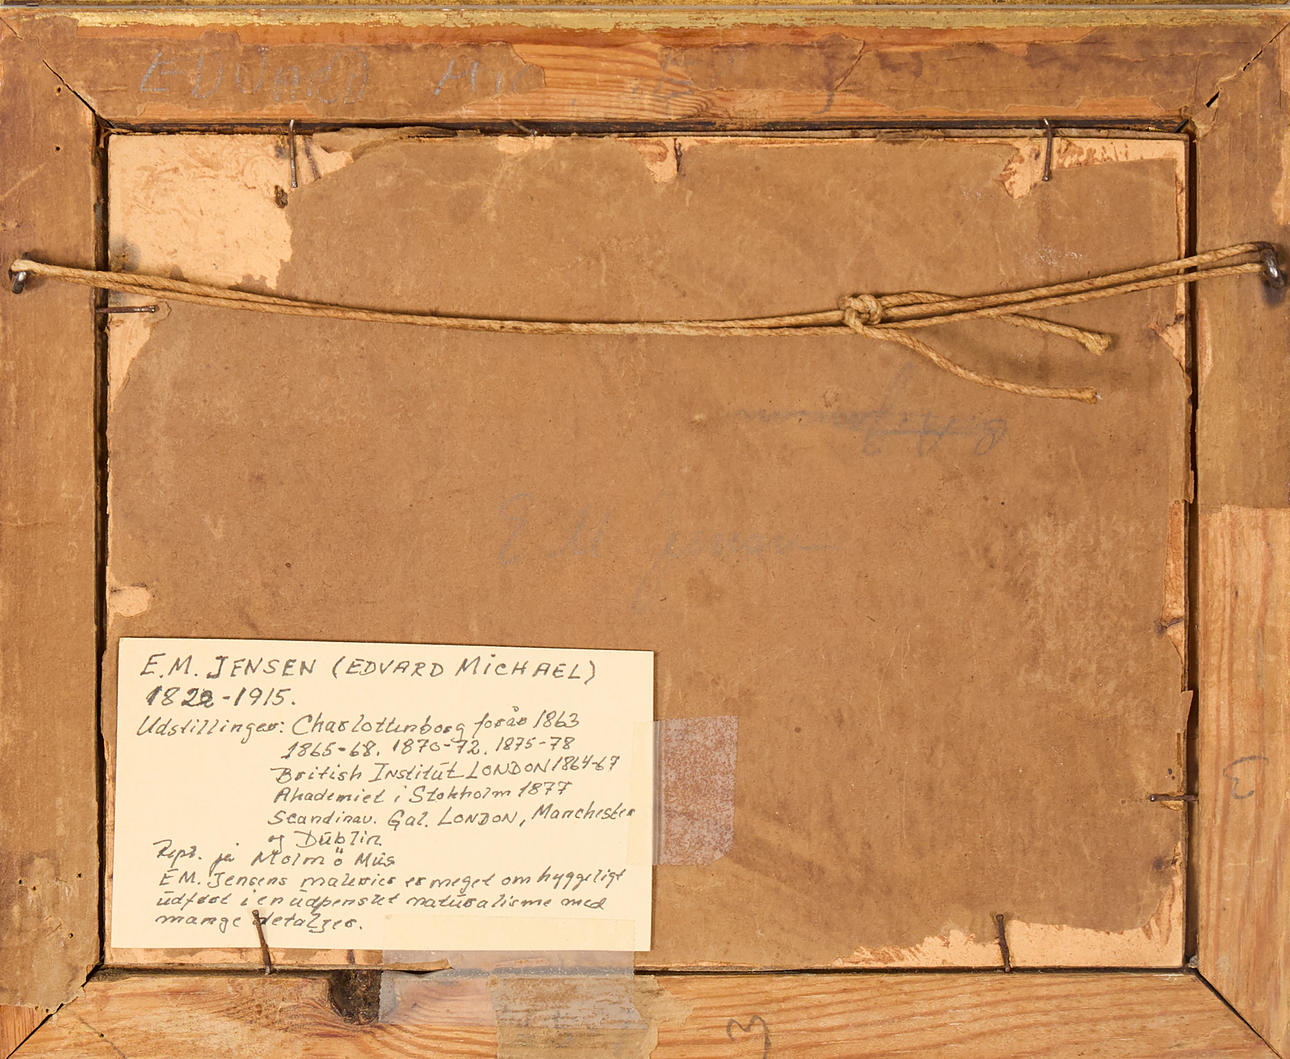 E.M. JENSEN (EDVARD MICHAEL)
1822-1915.
Udstillinger: Charlottenborg forår 1863
1865-68. 1870-72. 1875-78
British Institut LONDON 1864-67
Akademiet i Stokholm 1877
Scandinav. Gal. LONDON, Manchester
og Dublin
Rept. på Malmö Mus
E.M. Jensens malerier er meget omhyggeligt
udført i en udpenslet naturalisme med
mange detaljer.
E M Jensen
3
3